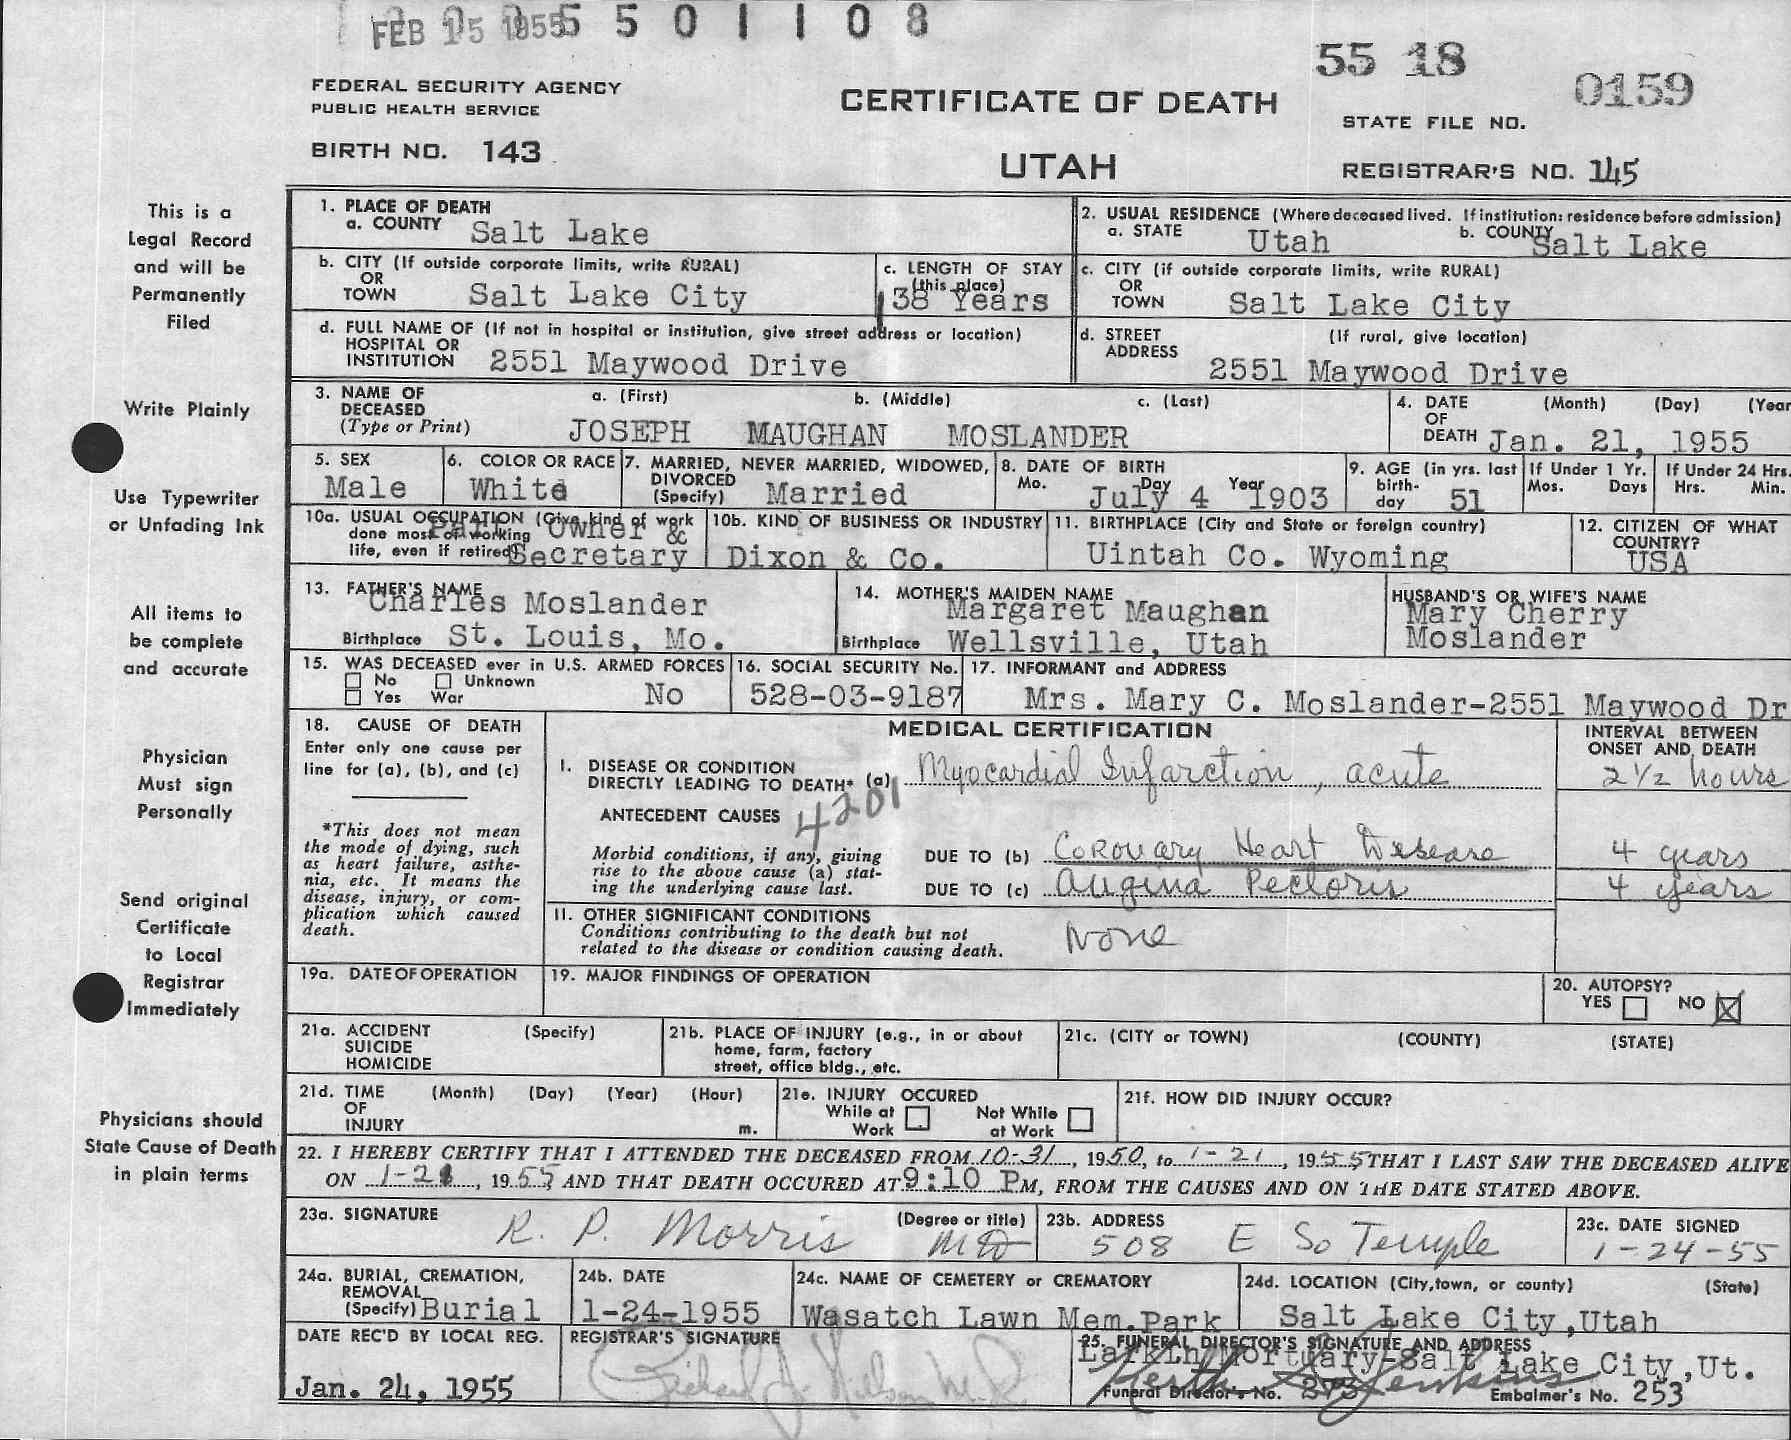 FEB 15 1955 5 5 0 1 1 0 8
55 18
0159
FEDERAL SECURITY AGENCY
PUBLIC HEALTH SERVICE
CERTIFICATE OF DEATH
STATE FILE NO.
BIRTH NO. 143
UTAH
REGISTRAR'S NO. 145
This is a
Legal Record
and will be
Permanently
Filed
Write Plainly
Use Typewriter
or Unfading Ink
All items to
be complete
and accurate
Physician
Must sign
Personally
Send original
Certificate
to Local
Registrar
Immediately
Physicians should
State Cause of Death
in plain terms
1. PLACE OF DEATH
a. COUNTY Salt Lake
2. USUAL RESIDENCE (Where deceased lived. If institution: residence before admission)
a. STATE Utah b. COUNTY Salt Lake
b. CITY (If outside corporate limits, write RURAL)
OR
TOWN Salt Lake City
c. LENGTH OF STAY
(this place)
38 Years
c. CITY (if outside corporate limits, write RURAL)
OR
TOWN Salt Lake City
d. FULL NAME OF (If not in hospital or institution, give street address or location)
HOSPITAL OR
INSTITUTION 2551 Maywood Drive
d. STREET (If rural, give location)
ADDRESS
2551 Maywood Drive
3. NAME OF a. (First) b. (Middle) c. (Last)
DECEASED
(Type or Print) JOSEPH MAUGHAN MOSLANDER
4. DATE (Month) (Day) (Year
OF
DEATH Jan. 21, 1955
5. SEX
Male
6. COLOR OR RACE
White
7. MARRIED, NEVER MARRIED, WIDOWED,
DIVORCED
(Specify) Married
8. DATE OF BIRTH
Mo. Day Year
July 4 1903
9. AGE (in yrs. last
birth-
day 51
If Under 1 Yr.
Mos. Days
If Under 24 Hrs.
Hrs. Min.
10a. USUAL OCCUPATION (Give kind of work
done most of working
life, even if retired)
Part Owner &
Secretary
10b. KIND OF BUSINESS OR INDUSTRY
Dixon & Co.
11. BIRTHPLACE (City and State or foreign country)
Uintah Co. Wyoming
12. CITIZEN OF WHAT
COUNTRY?
USA
13. FATHER'S NAME
Charles Moslander
Birthplace St. Louis, Mo.
14. MOTHER'S MAIDEN NAME
Margaret Maughan
Birthplace Wellsville, Utah
HUSBAND'S OR WIFE'S NAME
Mary Cherry
Moslander
15. WAS DECEASED ever in U.S. ARMED FORCES
No Unknown
Yes War No
16. SOCIAL SECURITY No.
528-03-9187
17. INFORMANT and ADDRESS
Mrs. Mary C. Moslander-2551 Maywood Dr
18. CAUSE OF DEATH
Enter only one cause per
line for (a), (b), and (c)
*This does not mean
the mode of dying, such
as heart failure, asthe-
nia, etc. It means the
disease, injury, or com-
plication which caused
death.
MEDICAL CERTIFICATION
INTERVAL BETWEEN
ONSET AND DEATH
I. DISEASE OR CONDITION
DIRECTLY LEADING TO DEATH* (a) Myocardial Infarction, acute 2 1/2 hours
ANTECEDENT CAUSES 4201
Morbid conditions, if any, giving
rise to the above cause (a) stat-
ing the underlying cause last.
DUE TO (b) Coronary Heart Disease 4 years
DUE TO (c) Angina Pectoris 4 years
II. OTHER SIGNIFICANT CONDITIONS
Conditions contributing to the death but not
related to the disease or condition causing death.
None
19a. DATE OF OPERATION
19. MAJOR FINDINGS OF OPERATION
20. AUTOPSY?
YES NO
21a. ACCIDENT (Specify)
SUICIDE
HOMICIDE
21b. PLACE OF INJURY (e.g., in or about
home, farm, factory
street, office bldg., etc.
21c. (CITY or TOWN) (COUNTY) (STATE)
21d. TIME (Month) (Day) (Year) (Hour)
OF
INJURY m.
21e. INJURY OCCURED
While at Not While
Work at Work
21f. HOW DID INJURY OCCUR?
22. I HEREBY CERTIFY THAT I ATTENDED THE DECEASED FROM 10-31, 1950, to 1-21, 1955 THAT I LAST SAW THE DECEASED ALIVE
ON 1-21, 1955 AND THAT DEATH OCCURED AT 9:10 PM, FROM THE CAUSES AND ON THE DATE STATED ABOVE.
23a. SIGNATURE (Degree or title)
R. P. Morris MD
23b. ADDRESS
508 E So Temple
23c. DATE SIGNED
1-24-55
24a. BURIAL, CREMATION,
REMOVAL
(Specify) Burial
24b. DATE
1-24-1955
24c. NAME OF CEMETERY or CREMATORY
Wasatch Lawn Mem.Park
24d. LOCATION (City, town, or county) (State)
Salt Lake City,Utah
DATE REC'D BY LOCAL REG.
Jan. 24, 1955
REGISTRAR'S SIGNATURE
25. FUNERAL DIRECTOR'S SIGNATURE AND ADDRESS
Larkin Mortuary-Salt Lake City,Ut.
Funeral Director's No. 273 Embalmer's No. 253